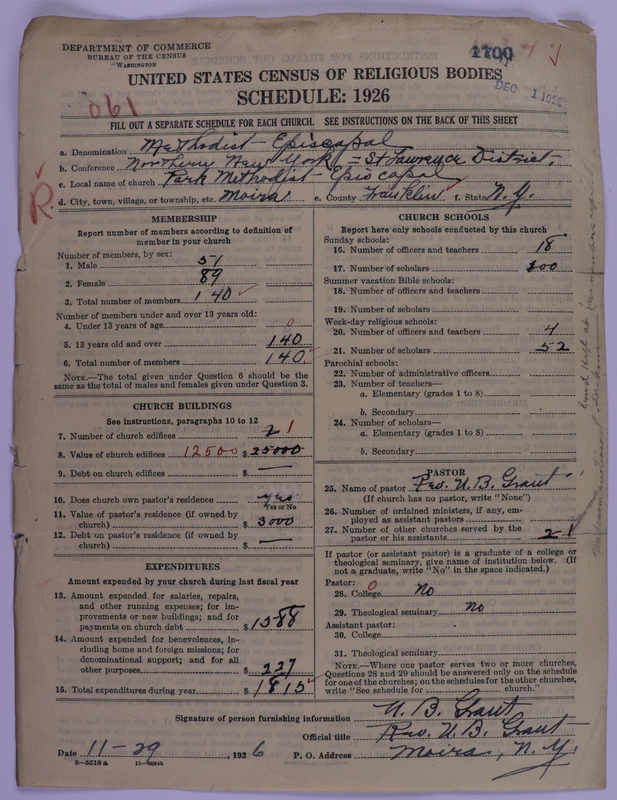 DEPARTMENT OF COMMERCE
BUREAU OF THE CENSUS
WASHINGTON
1700
DEC 1 192
UNITED STATES CENSUS OF RELIGIOUS BODIES
SCHEDULE: 1926
061
FILL OUT A SEPARATE SCHEDULE FOR EACH CHURCH. SEE INSTRUCTIONS ON THE BACK OF THIS SHEET
a. Denomination Methodist - Episcopal
b. Conference Northern New York = St Lawrence District.
c. Local name of church Park Methodist - Episcopal
d. City, town, village, or township, etc. Moira e. County Franklin f. State N.Y.
R
MEMBERSHIP
Report number of members according to definition of
member in your church
Number of members, by sex:
1. Male 51
2. Female 89
3. Total number of members 140
Number of members under and over 13 years old:
4. Under 13 years of age 0
5. 13 years old and over 140
6. Total number of members 140
NOTE.—The total given under Question 6 should be the
same as the total of males and females given under Question 3.
CHURCH BUILDINGS
See instructions, paragraphs 10 to 12
7. Number of church edifices 2 1
8. Value of church edifices 12500 $ 25000
9. Debt on church edifices $ —
10. Does church own pastor's residence yes
Yes or No
11. Value of pastor's residence (if owned by
church) $ 3000
12. Debt on pastor's residence (if owned by
church) $ —
EXPENDITURES
Amount expended by your church during last fiscal year
13. Amount expended for salaries, repairs,
and other running expenses; for im-
provements or new buildings; and for
payments on church debt $ 1588
14. Amount expended for benevolences, in-
cluding home and foreign missions; for
denominational support; and for all
other purposes $ 227
15. Total expenditures during year $ 1815
CHURCH SCHOOLS
Report here only schools conducted by this church
Sunday schools:
16. Number of officers and teachers 18
17. Number of scholars 200
Summer vacation Bible schools:
18. Number of officers and teachers
19. Number of scholars
Week-day religious schools:
20. Number of officers and teachers 4
21. Number of scholars 52
Parochial schools:
22. Number of administrative officers
23. Number of teachers—
a. Elementary (grades 1 to 8)
b. Secondary
24. Number of scholars—
a. Elementary (grades 1 to 8)
b. Secondary
PASTOR
25. Name of pastor Rev. U. B. Grant
(If church has no pastor, write "None")
26. Number of ordained ministers, if any, em-
ployed as assistant pastors
27. Number of other churches served by the
pastor or his assistants 2 1
If pastor (or assistant pastor) is a graduate of a college or
theological seminary, give name of institution below. (If
not a graduate, write "No" in the space indicated.)
Pastor: 0
28. College No
29. Theological seminary No
Assistant pastor:
30. College
31. Theological seminary
NOTE.—Where one pastor serves two or more churches,
Questions 28 and 29 should be answered only on the schedule
for one of the churches; on the schedules for the other churches,
write "See schedule for church."
Signature of person furnishing information U. B. Grant
Official title Rev. U. B. Grant
Date 11-29, 1926 P. O. Address Moira, N.Y.
8-5318 a